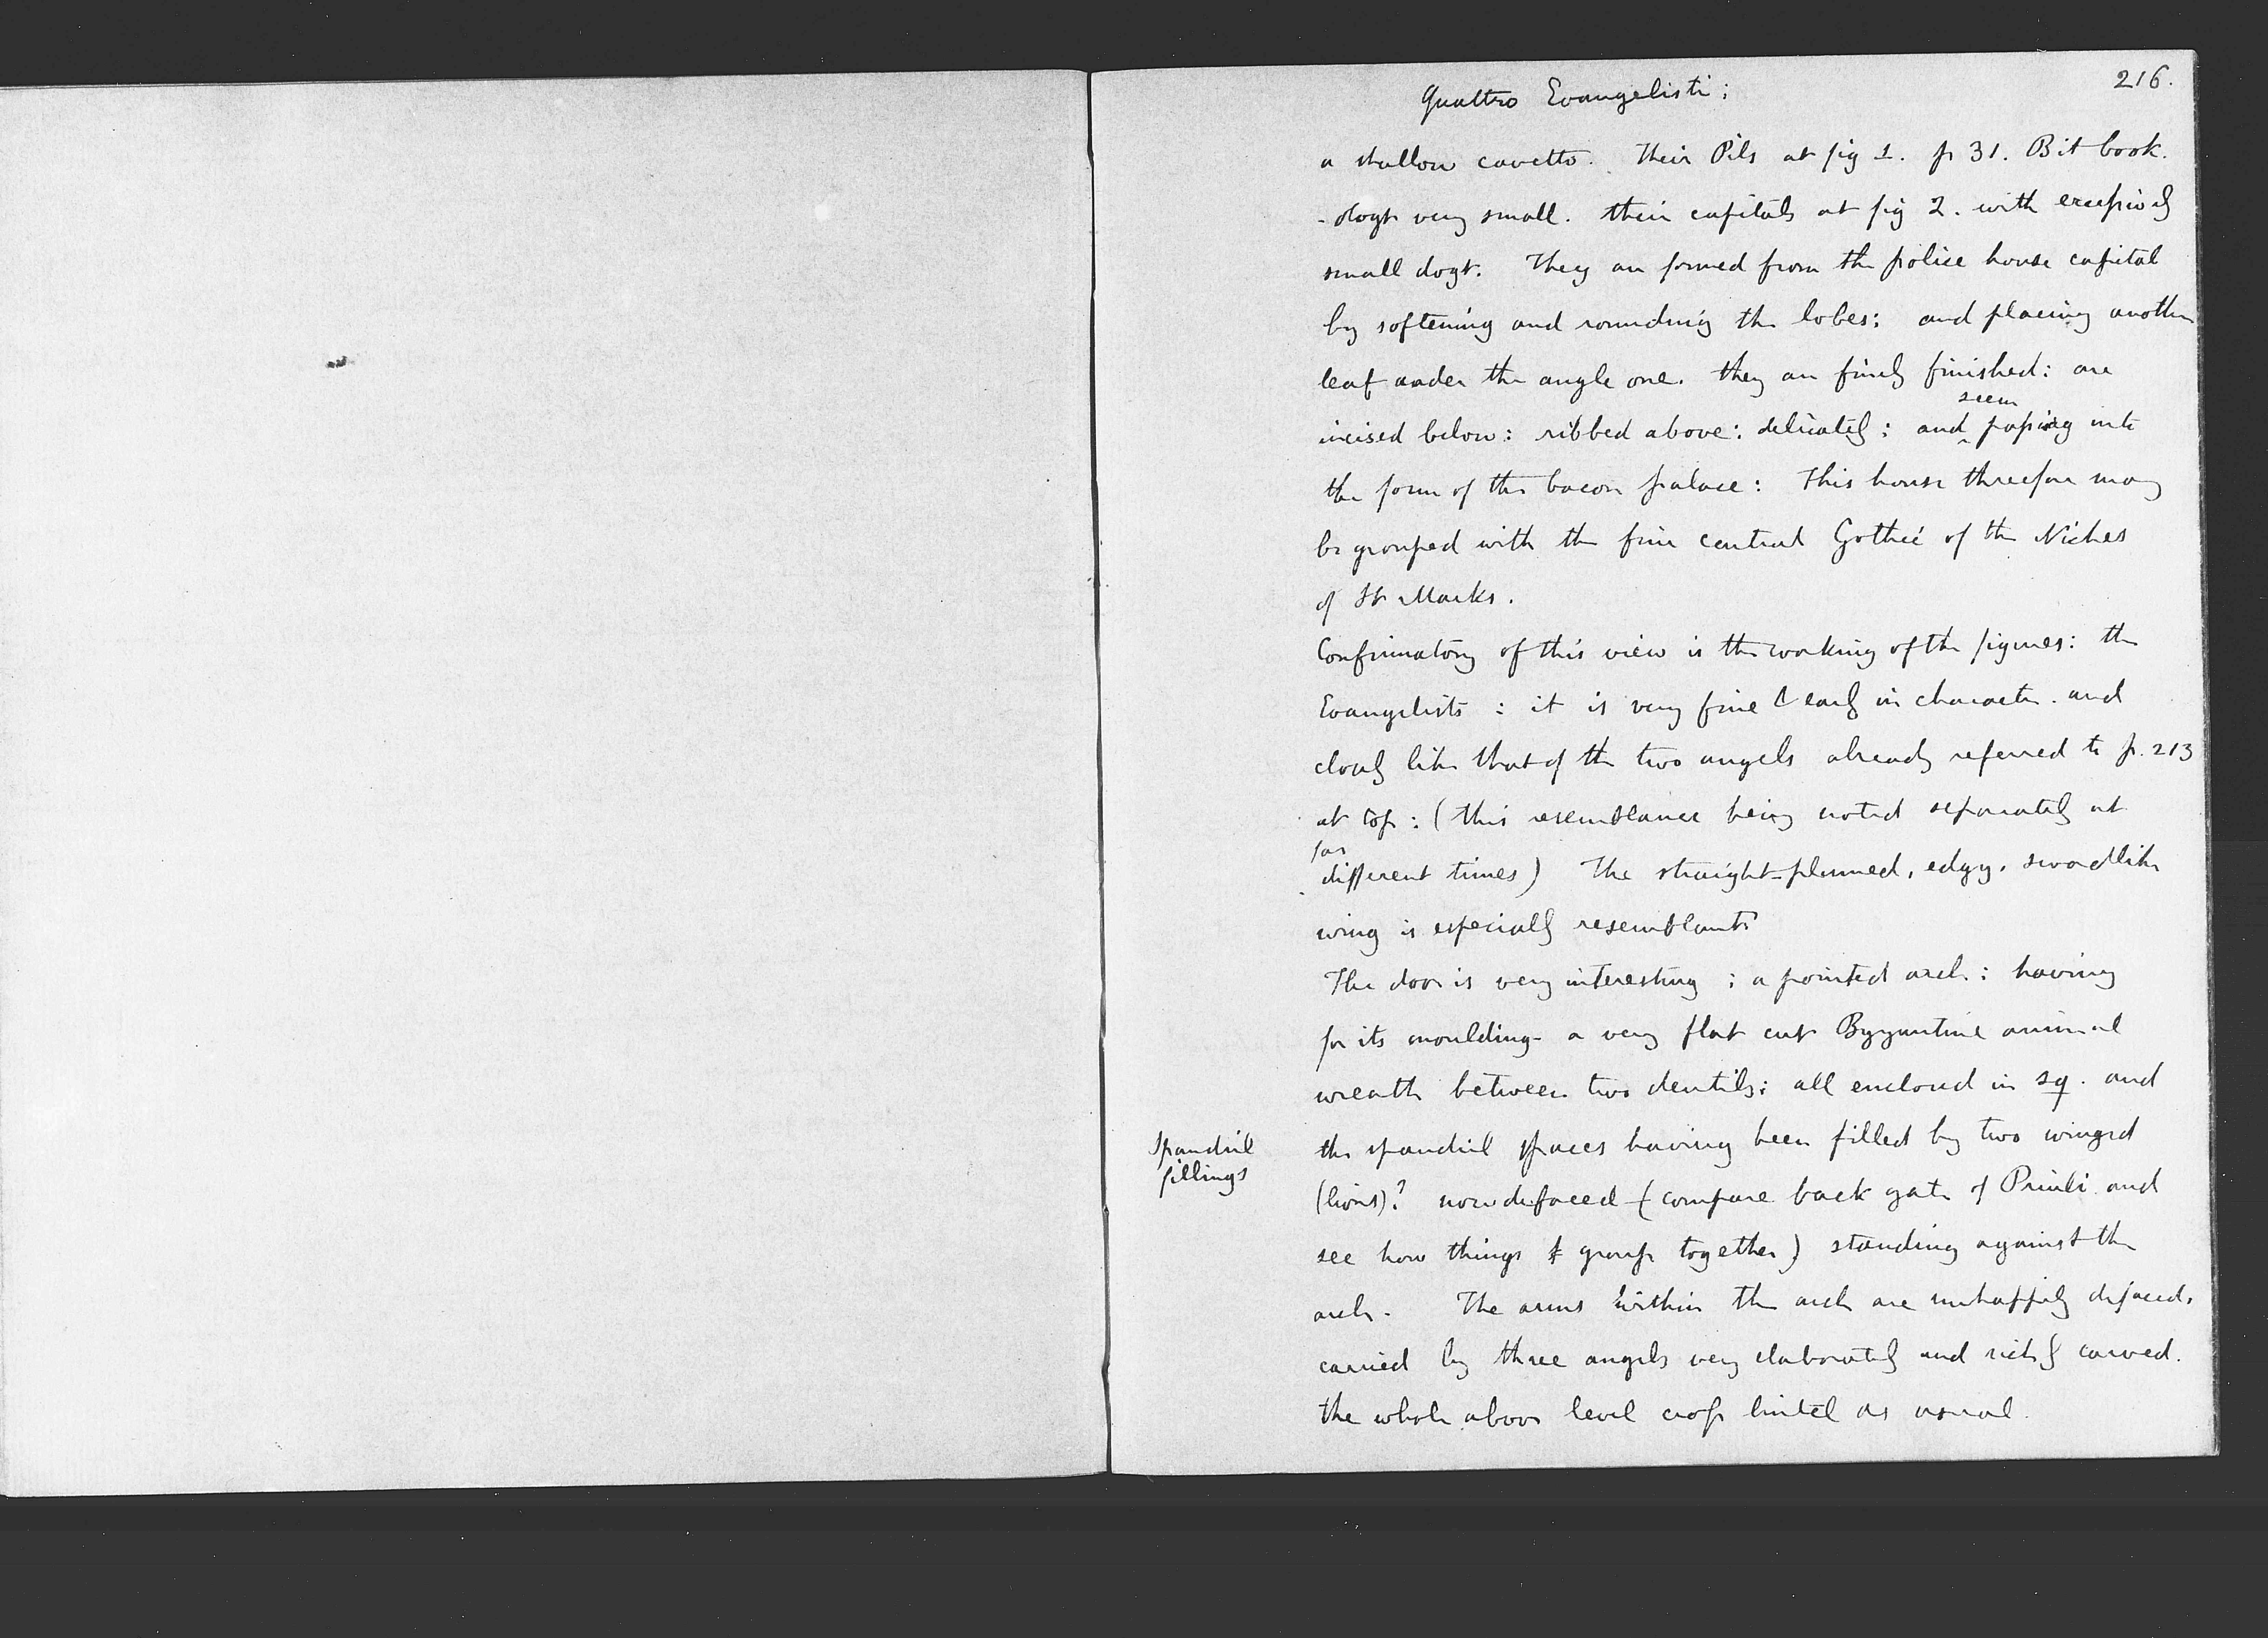 216.
Quattro Evangelisti;
a shallow cavetto. Their Pils at fig 1. p 31. Bit book.
- dogt very small. their capitals at fig 2. with excessively
small dogt. They are formed from the police house capital
by softening and rounding the lobes: and placing another
leaf under the angle one. they are finely finished: are
incised below: ribbed above: delicately: and seem passing into
the form of the bacon palace: This house therefore may
be grouped with the fine central Gothic of the Niches
of St Marks.
Confirmatory of this view is the working of the figures: the
Evangelists: it is very fine & early in character. and
closely like that of the two angels already referred to p. 213
at top: (this resemblance being noted separately at
far
different times) The straight-plumed, edgy, swordlike
wing is especially resemblant
The door is very interesting; a pointed arch: having
for its moulding- a very flat cut Byzantine animal
wreath between two dentils: all enclosed in sq. and
Spandril
fillings
the spandril spaces having been filled by two winged
(lions)? now defaced (compare back gate of Priuli and
see how things group together) standing against the
arch. The arms within the arch are unhappily defaced,
carried by three angels very elaborately and richly carved.
the whole above level cross lintel as usual.